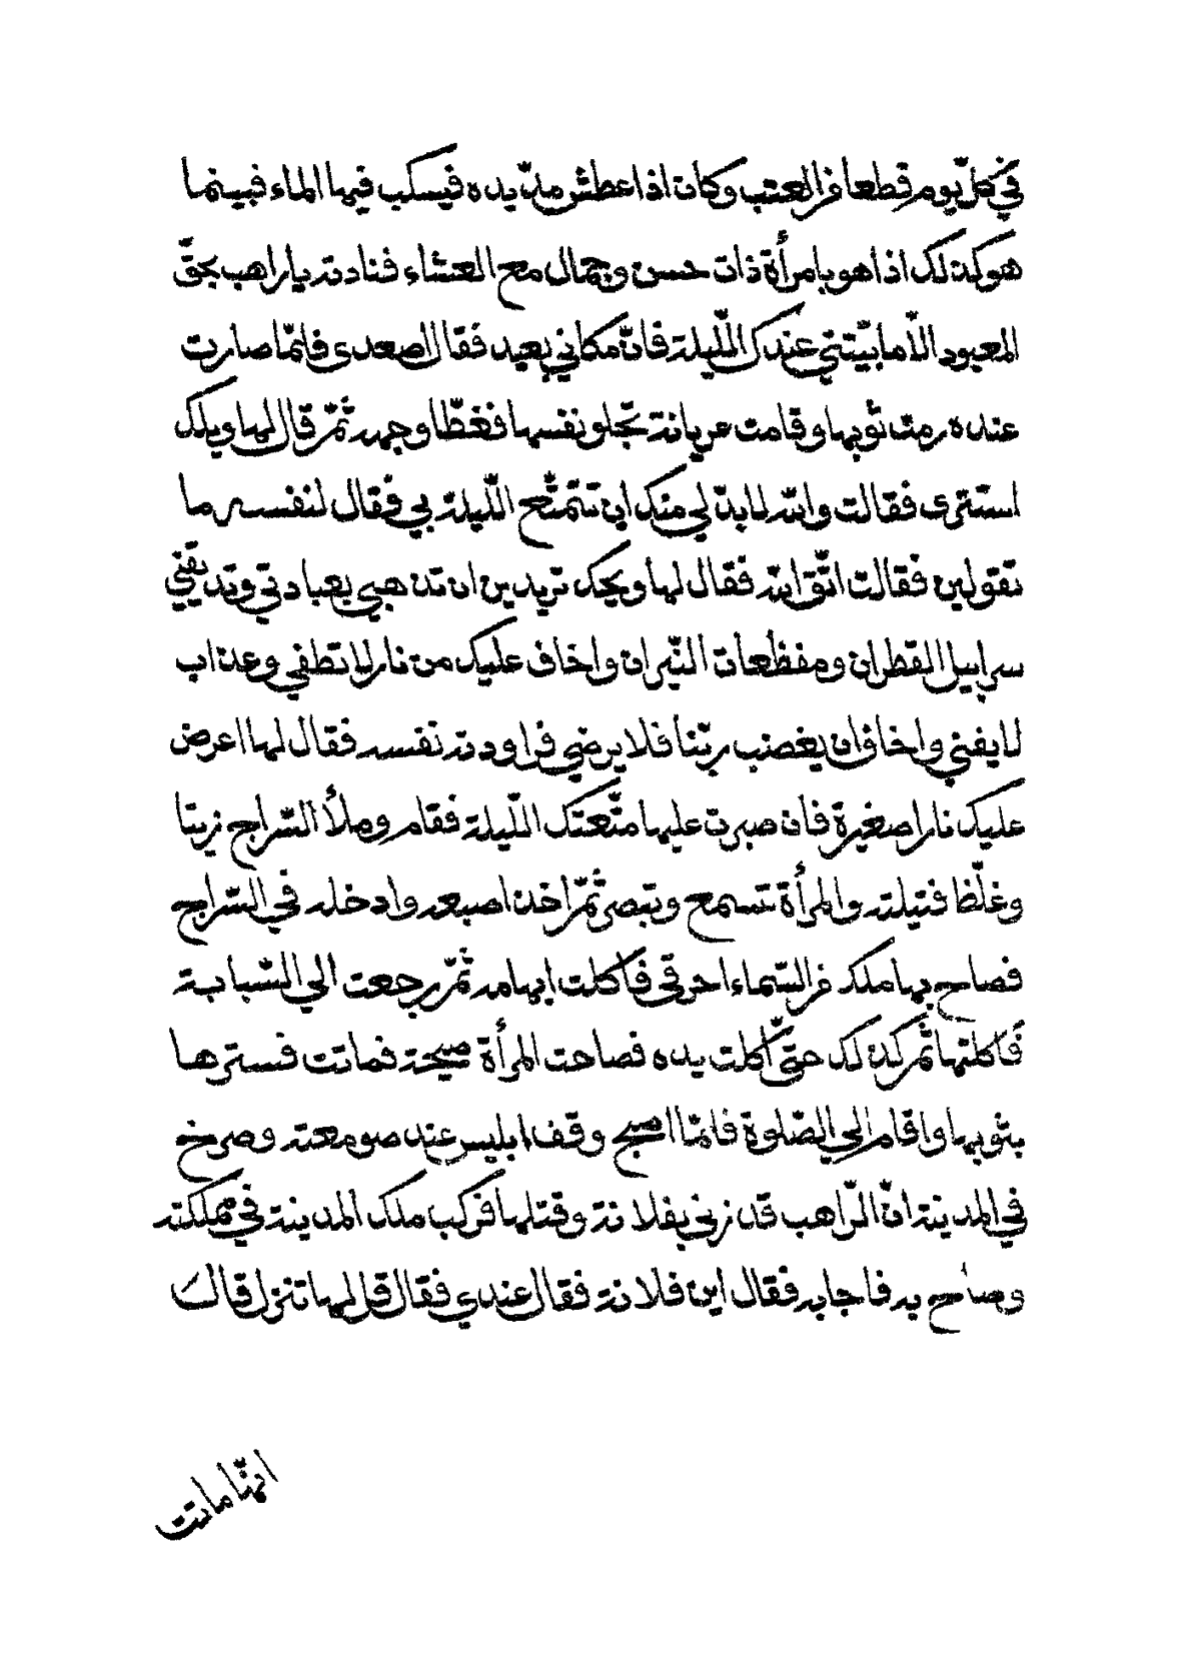 في كلّ يوم قطعا من العنب وكان اذا عطش مدّ يده فيسكب فيها الماء فبينما
هو كذلك اذا هو بامرأة ذات حسن وجمال مع العشاء فنادته يا راهب بحقّ
المعبود الّا ما بيّتني عندك اللّيلة فانّ مكاني بعيد فقال اصعدى فلمّا صارت
عنده رمت ثوبها وقامت عريانة تجلو نفسها فغطّا وجهه ثمّ قال لها ويلك
استترى فقالت والله لا بدّ لي منك ان تتمتّع اللّيلة بي فقال لنفسه ما
تقولين فقالت اتّق الله فقال لها ويحك تريدين ان تذهبي بعبادتي وتذيقني
سرابيل القطران ومفظّعات النّيران واخاف عليك من نار لا تطفي وعذاب
لا يفني واخاف ان يغضب ربّنا فلا يرضي فراودته نفسه فقال لها اعرض
عليك نارا صغيرة فان صبرت عليها متّعتك اللّيلة فقام وملأ السّراج زيتا
وغلّظ فتيلته والمرأة تسمع وتبصر ثمّ اخذ اصبعه وادخله في السّراج
فصاح بها ملك من السّماء احرقي فاكلت ابهامه ثمّ رجعت الي السّبابة
فاكلتها ثمّ كذلك حتّي اكلت يده فصاحت المرأة صيحة فماتت فسترها
بثوبها واقام الي الصّلوة فلمّا اصبح وقف ابليس عند صومعته وصرخ
في المدينة انّ الرّاهب قد زني بفلانة وقتلها فركب ملك المدينة في مملكته
وصاح به فاجابه فقال اين فلانة فقال عندي فقال قل لها تنزل قال
انّها ماتت